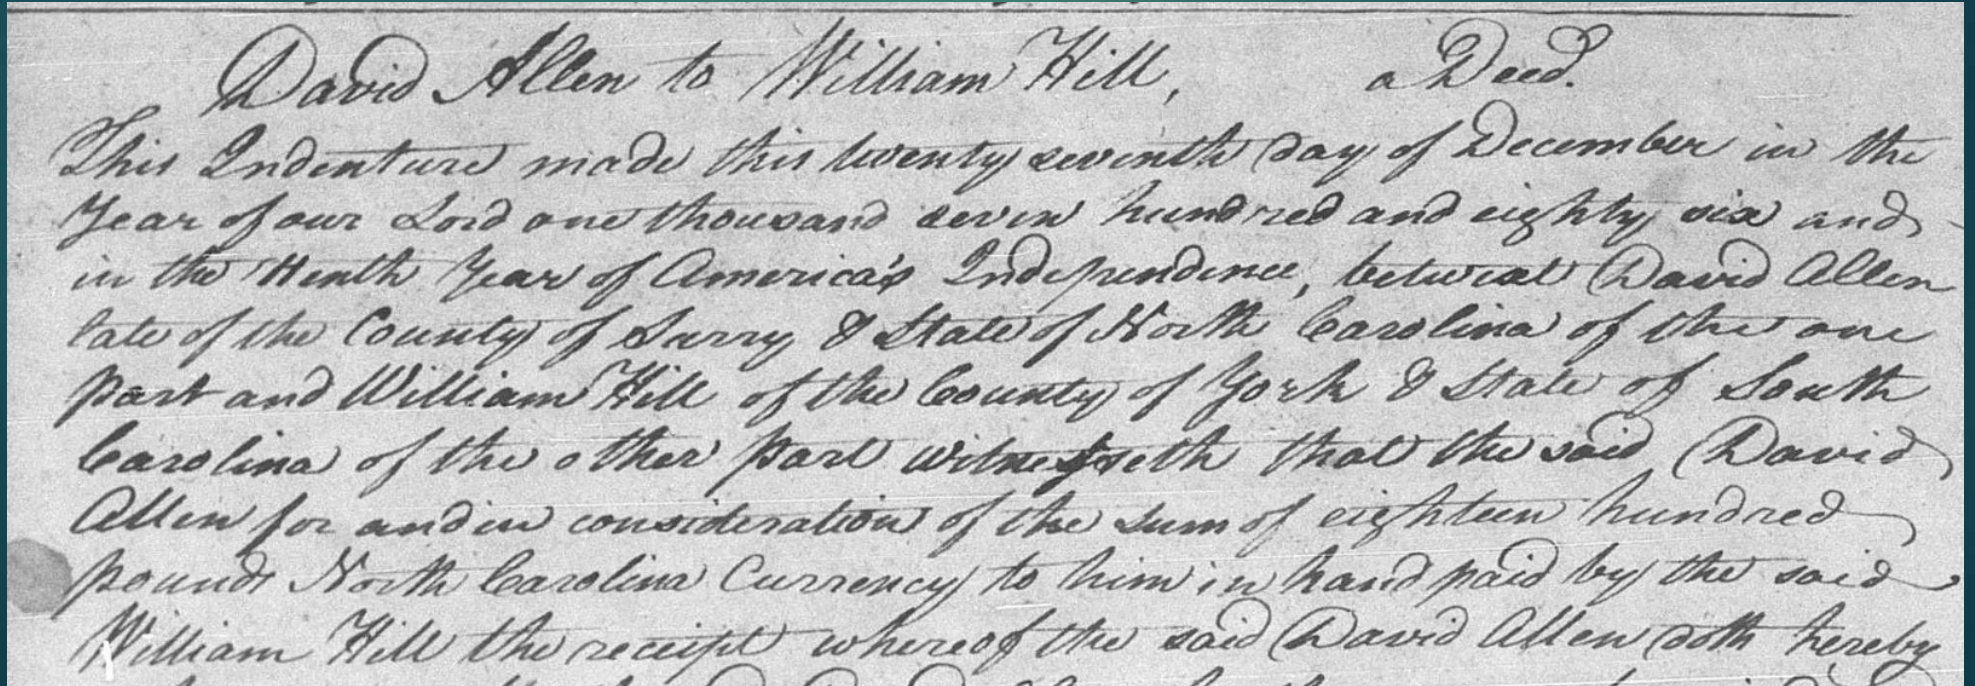 David Allen to William Hill, a Deed.
This Indenture made this twenty seventh day of December in the
Year of our Lord one thousand seven hundred and eighty six and
in the Tenth Year of America's Independence, betwixt David Allen
late of the County of Surry & State of North Carolina of the one
part and William Hill of the County of York & State of South
Carolina of the other part witnesseth that the said David
Allen for and in consideration of the sum of eighteen hundred
pounds North Carolina Currency to him in hand paid by the said
William Hill the receipt whereof the said David Allen doth hereby